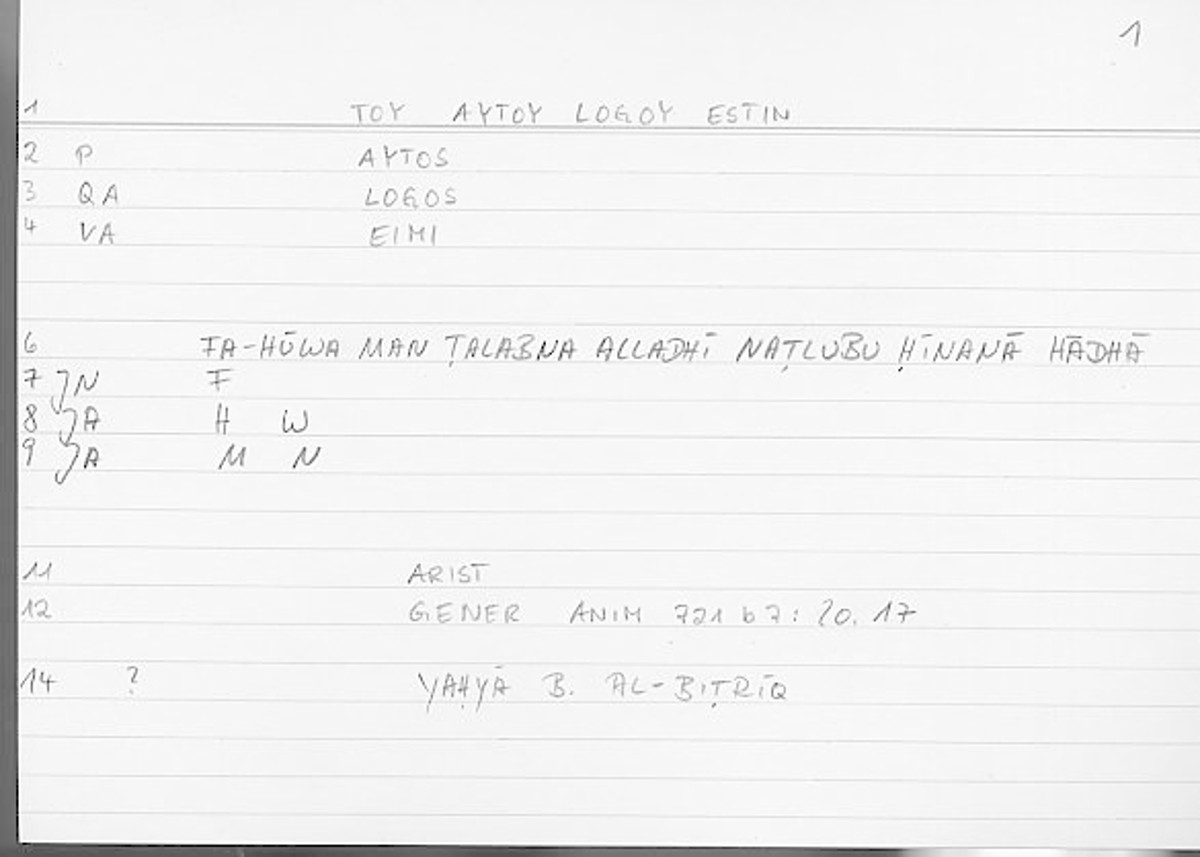 1
1 TOY AYTOY LOGOY ESTIN
2 P AYTOS
3 QA LOGOS
4 VA EIMI
6 FA-HŪWA MAN ṬALABNA ALLADHĪ NAṬLUBU ḤĪNANĀ HĀDHĀ
7 JN F
8 JA H W
9 JA M N
11 ARIST
12 GENER ANIM 721 b 7: 20. 17
14 ? YAḤYĀ B. AL-BIṬRĪQ